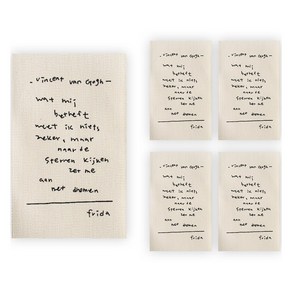 - vincent van Gogh -
wat mij
betreft
weet ik niets,
zeker, maar
naar de
sterren kijken
zet me
aan
het dromen
frida
- vincent van Gogh -
wat mij
betreft
weet ik niets,
zeker, maar
naar de
sterren kijken
zet me
aan
het dromen
frida
- vincent van Gogh -
wat mij
betreft
weet ik niets,
zeker, maar
naar de
sterren kijken
zet me
aan
het dromen
frida
- vincent van Gogh -
wat mij
betreft
weet ik niets,
zeker, maar
naar de
sterren kijken
zet me
aan
het dromen
frida
- vincent van Gogh -
wat mij
betreft
weet ik niets,
zeker, maar
naar de
sterren kijken
zet me
aan
het dromen
frida